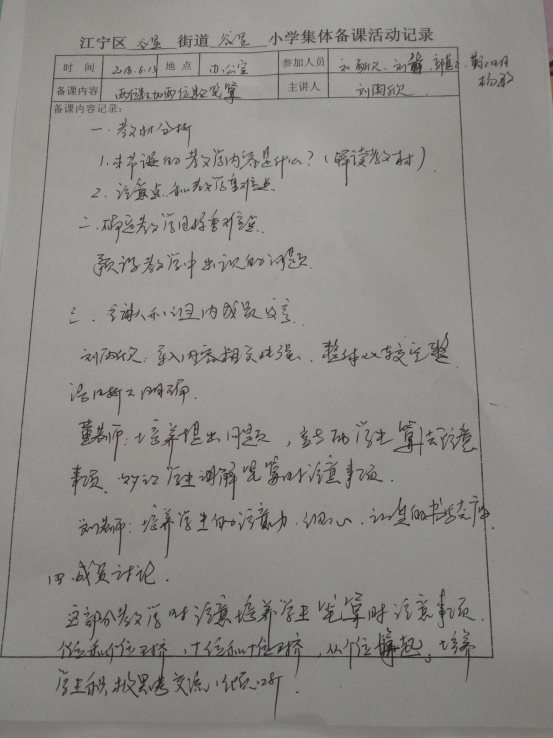 江宁区 谷里 街道 谷里 小学集体备课活动记录
时 间 2018.6.19 地 点 办公室 参加人员 刘 刘
备课内容 两位数加两位数笔算 主讲人 刘雨欣
备课内容记录：
一. 教材分析
1. 本节课的教学内容是什么？（解读教材）
2. 注意点和教学重难点
二. 确定教学目标重难点.
预设教学中出现的问题.
三. 主讲人和组内成员发言.
刘雨欣：导入内容相关性强、整体比较完整
语 明确.
董老师：培养提出问题， 学生算法注意
事项. 学生讲解笔算时注意事项.
刘老师：培养学生的注意力.细心、认真的书写态度
四. 成员讨论.
这部分教学时注意培养学生笔算时注意事项.
个位和个位对齐，十位和十位对齐，从个位算起。培养
学生积极思考交流